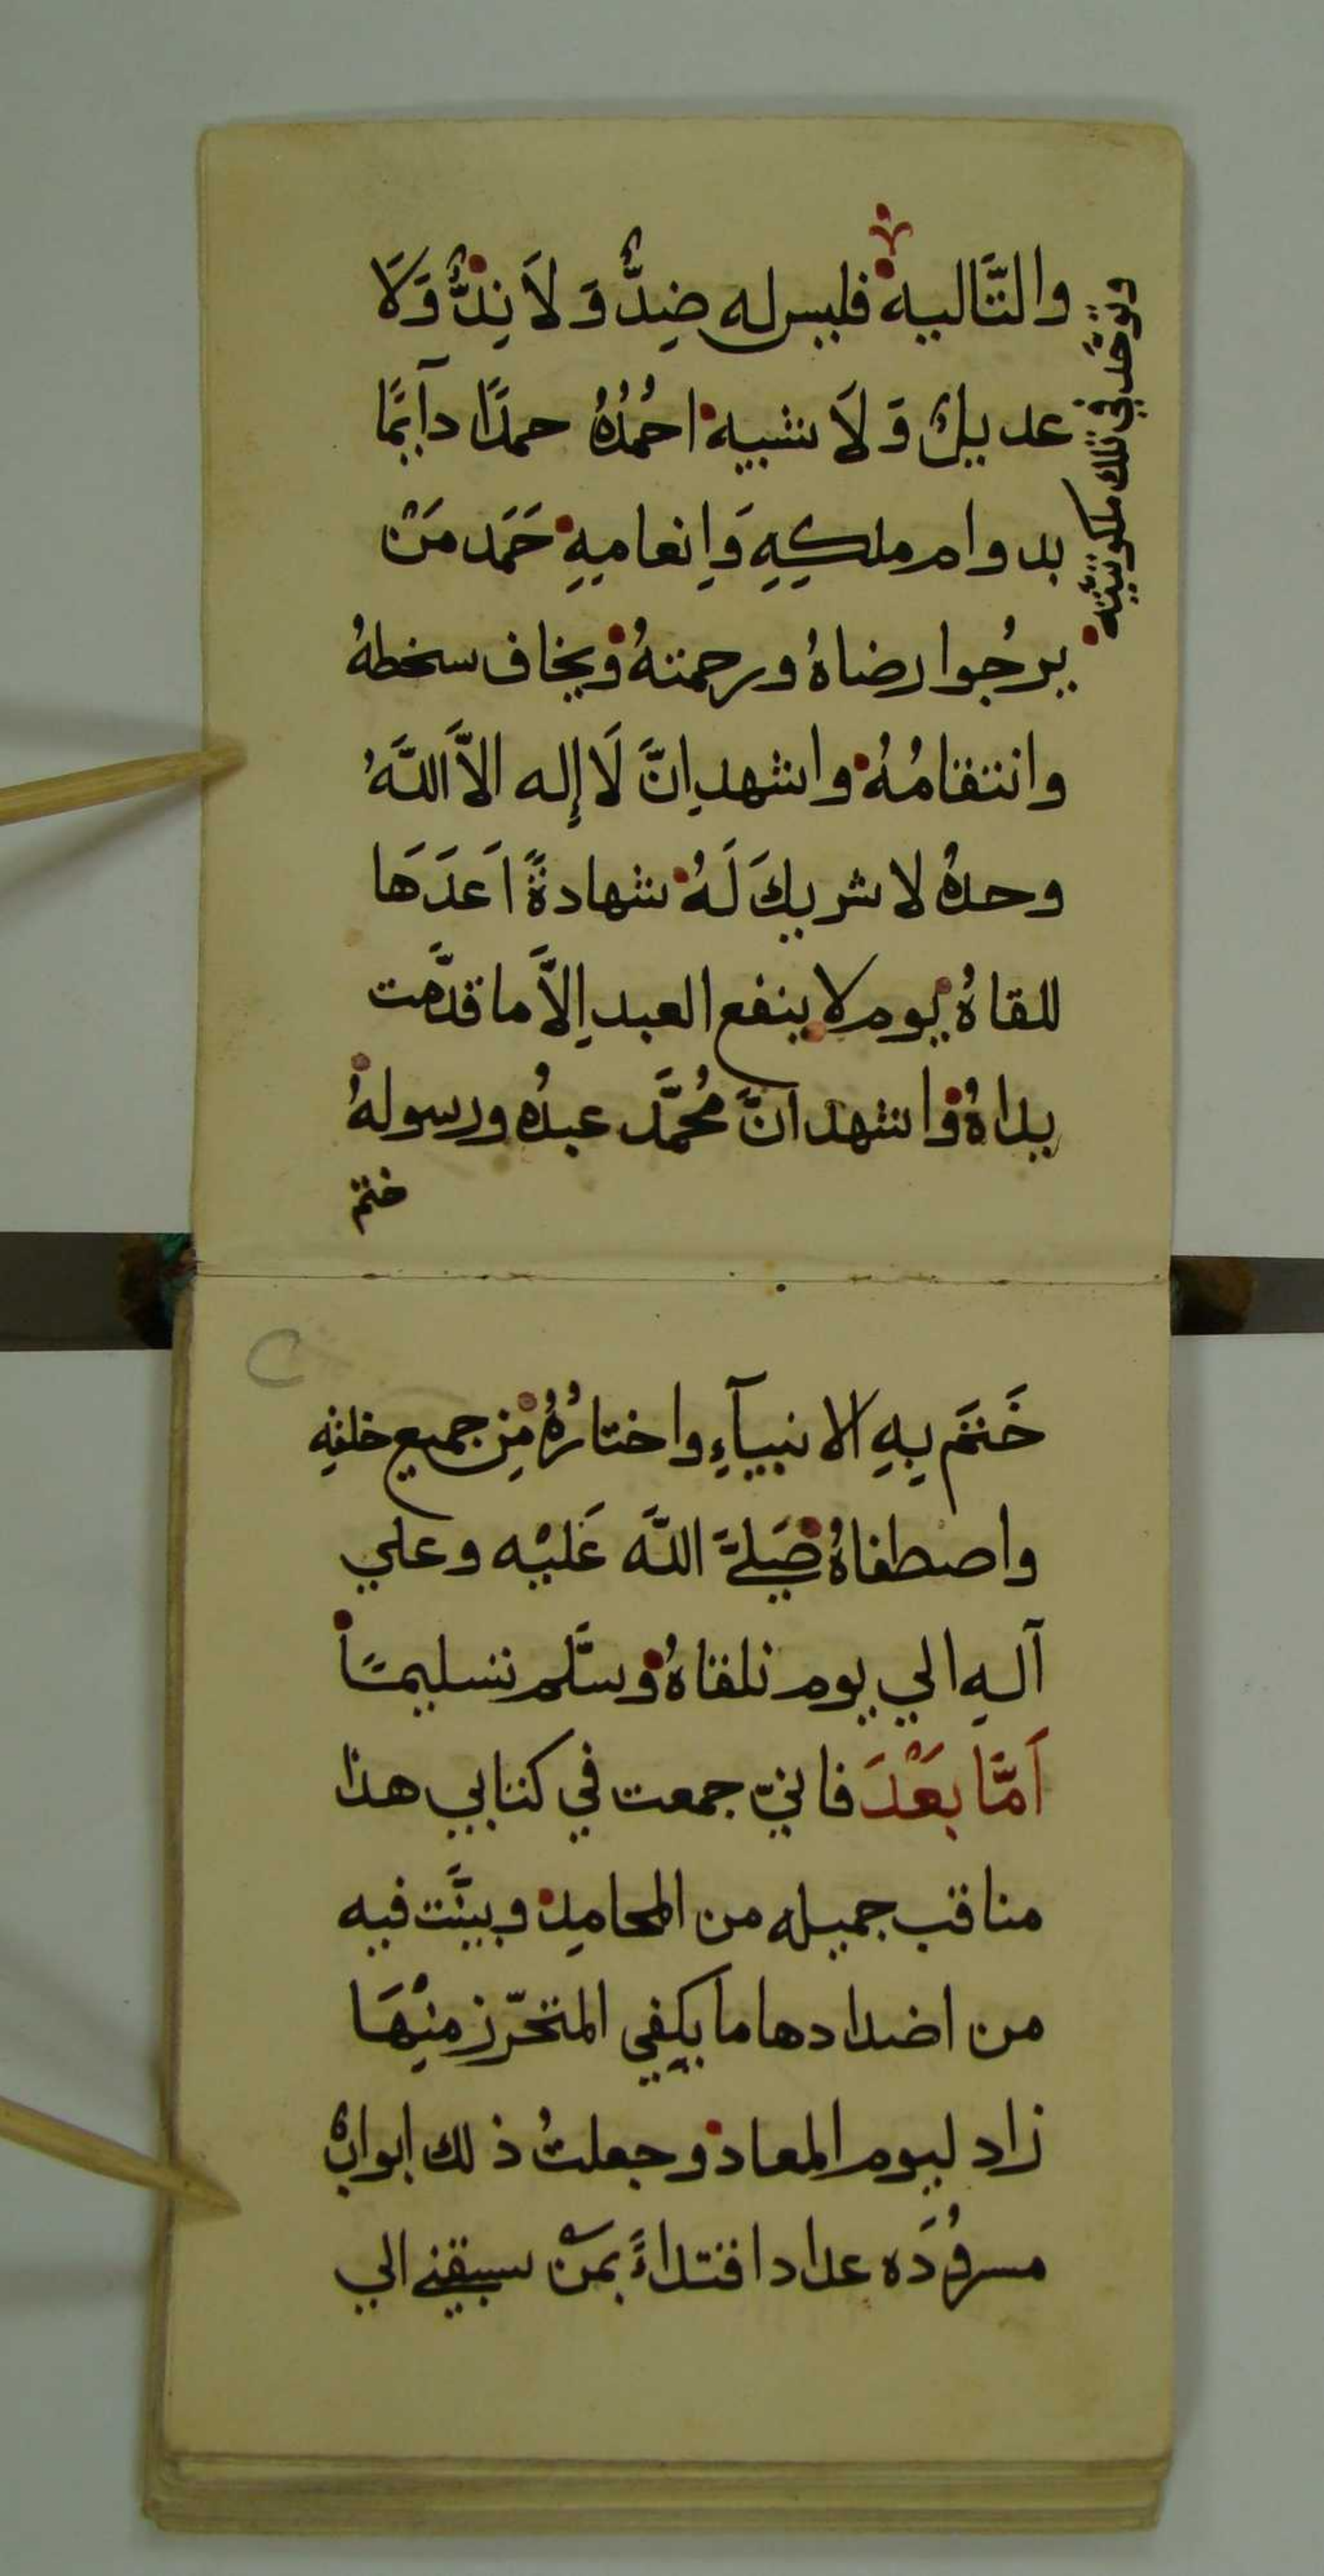 والتَّاليه فليس له ضِدٌّ وَلَا نِدٌّ وَلَا
وتوحَّد في تلك ملكوتيَّته
عديلٌ وَلَا شبيه احمُدُهُ حمدًا دآيمًا
بدوام ملكِهِ وَاِنعامِهِ حَمَد مَنْ
يرجُوا رضاهُ ورحمتهُ ويخاف سخطهُ
وانتقامُهُ واشهد اِنَّ لَا إِله الاَّ اللَّهُ
وحدهُ لا شريكَ لَهُ شهادةً اَعدَهَا
للقاهُ يوم لا ينفع العبد اِلاَّ ما قدَّمت
يداهُ واشهد انَّ مُحمَّد عبدُه ورسولهُ
ختم
خَتَم بِهِ الانبيآءِ واختارُهُ مِن جميع خلقِهِ
واصطفاهُ صَلَّى اللَّه عَليْه وعلي
آلهِ الي يوم نلقاهُ وسلَّم تسليمًا
اَمَّا بَعْدَ فانيّ جمعت في كتابي هذا
مناقب جميله من المحامِد وبيَّنت فيه
من اضدادها ما يكفي المتحرّز منِهَا
زاد ليوم المعاد وجعلتُ ذلك ابوابٌ
مسرُودَه عداد اقتداءً بمنْ سبقني الي